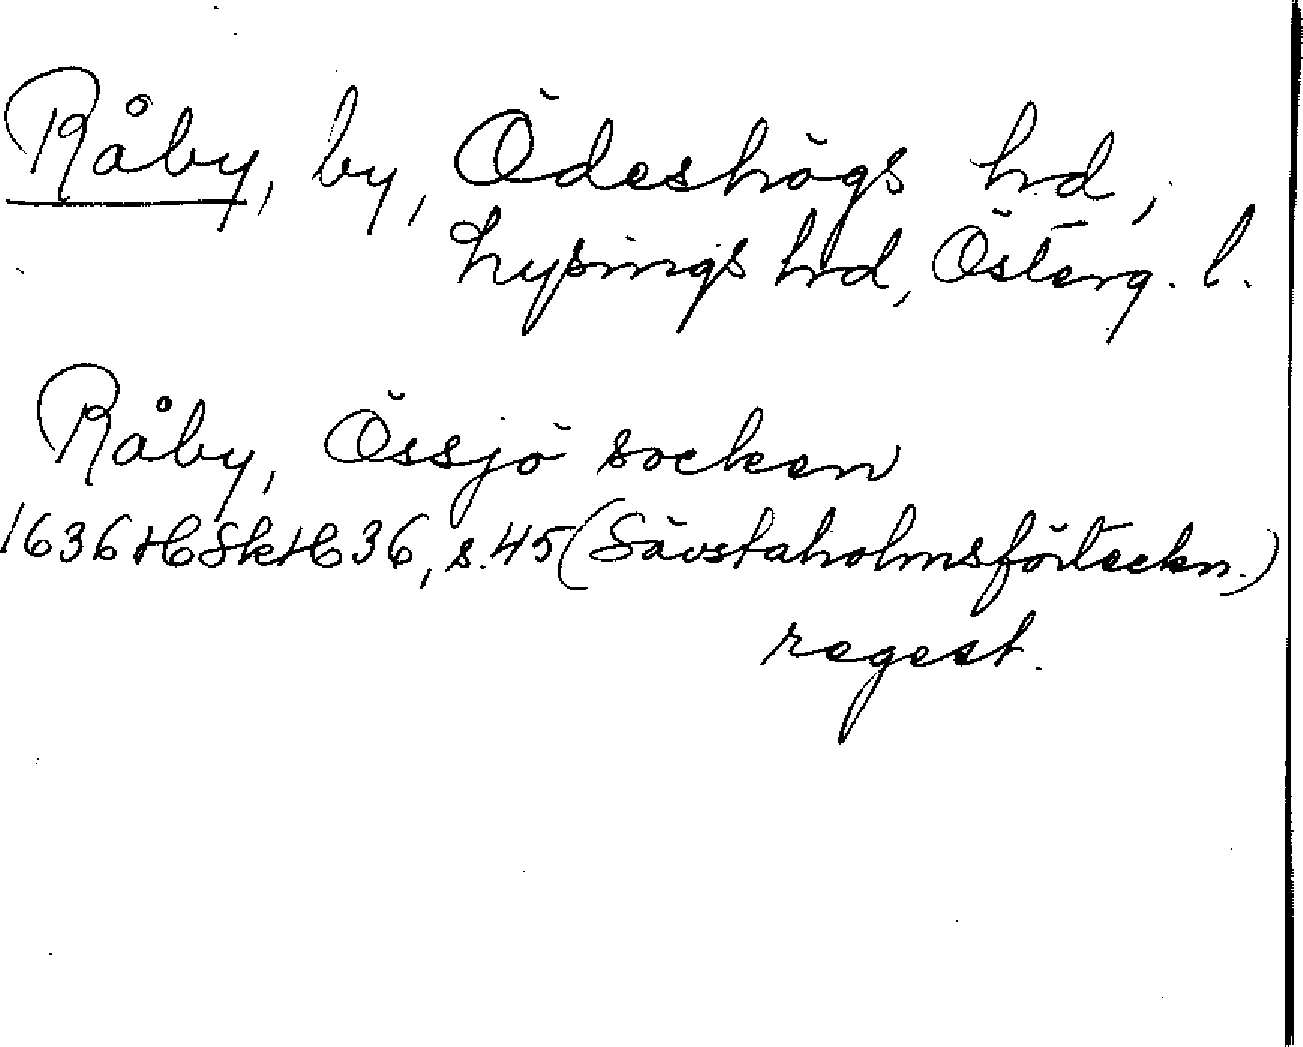 Råby, by, Ödeshögs hd,
Lysings hd, Österg. l.
Råby, Össjö socken
1636 HSkH 36, s. 45 (Sävstaholmsförteckn.)
regest.